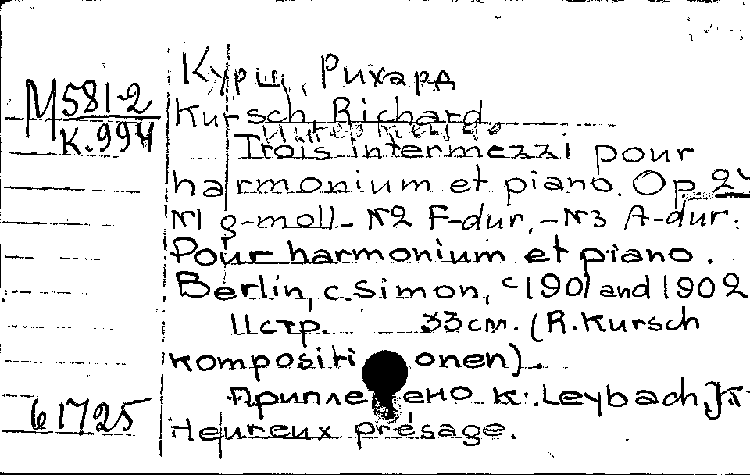 Курш, Рихард
М581-2
К.994
Kursch, Richard.
Trois intermezzi pour
harmonium et piano. Op.
№1 g-moll- №2 F-dur,-№3 A-dur.
Pour harmonium et piano.
Berlin, c.Simon, c1901 and 1902
11стр. 33см. (R.Kursch
kompositionen).
Приплетено к: Leybach,
Heureux présage.
61725